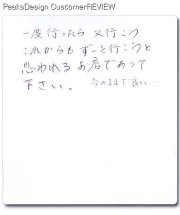 PeeksDesign CustomerREVIEW
一度行ったら 又行こう
これからも ずーと行こうと
思われる お店であって
下さい。 今のままで良い…